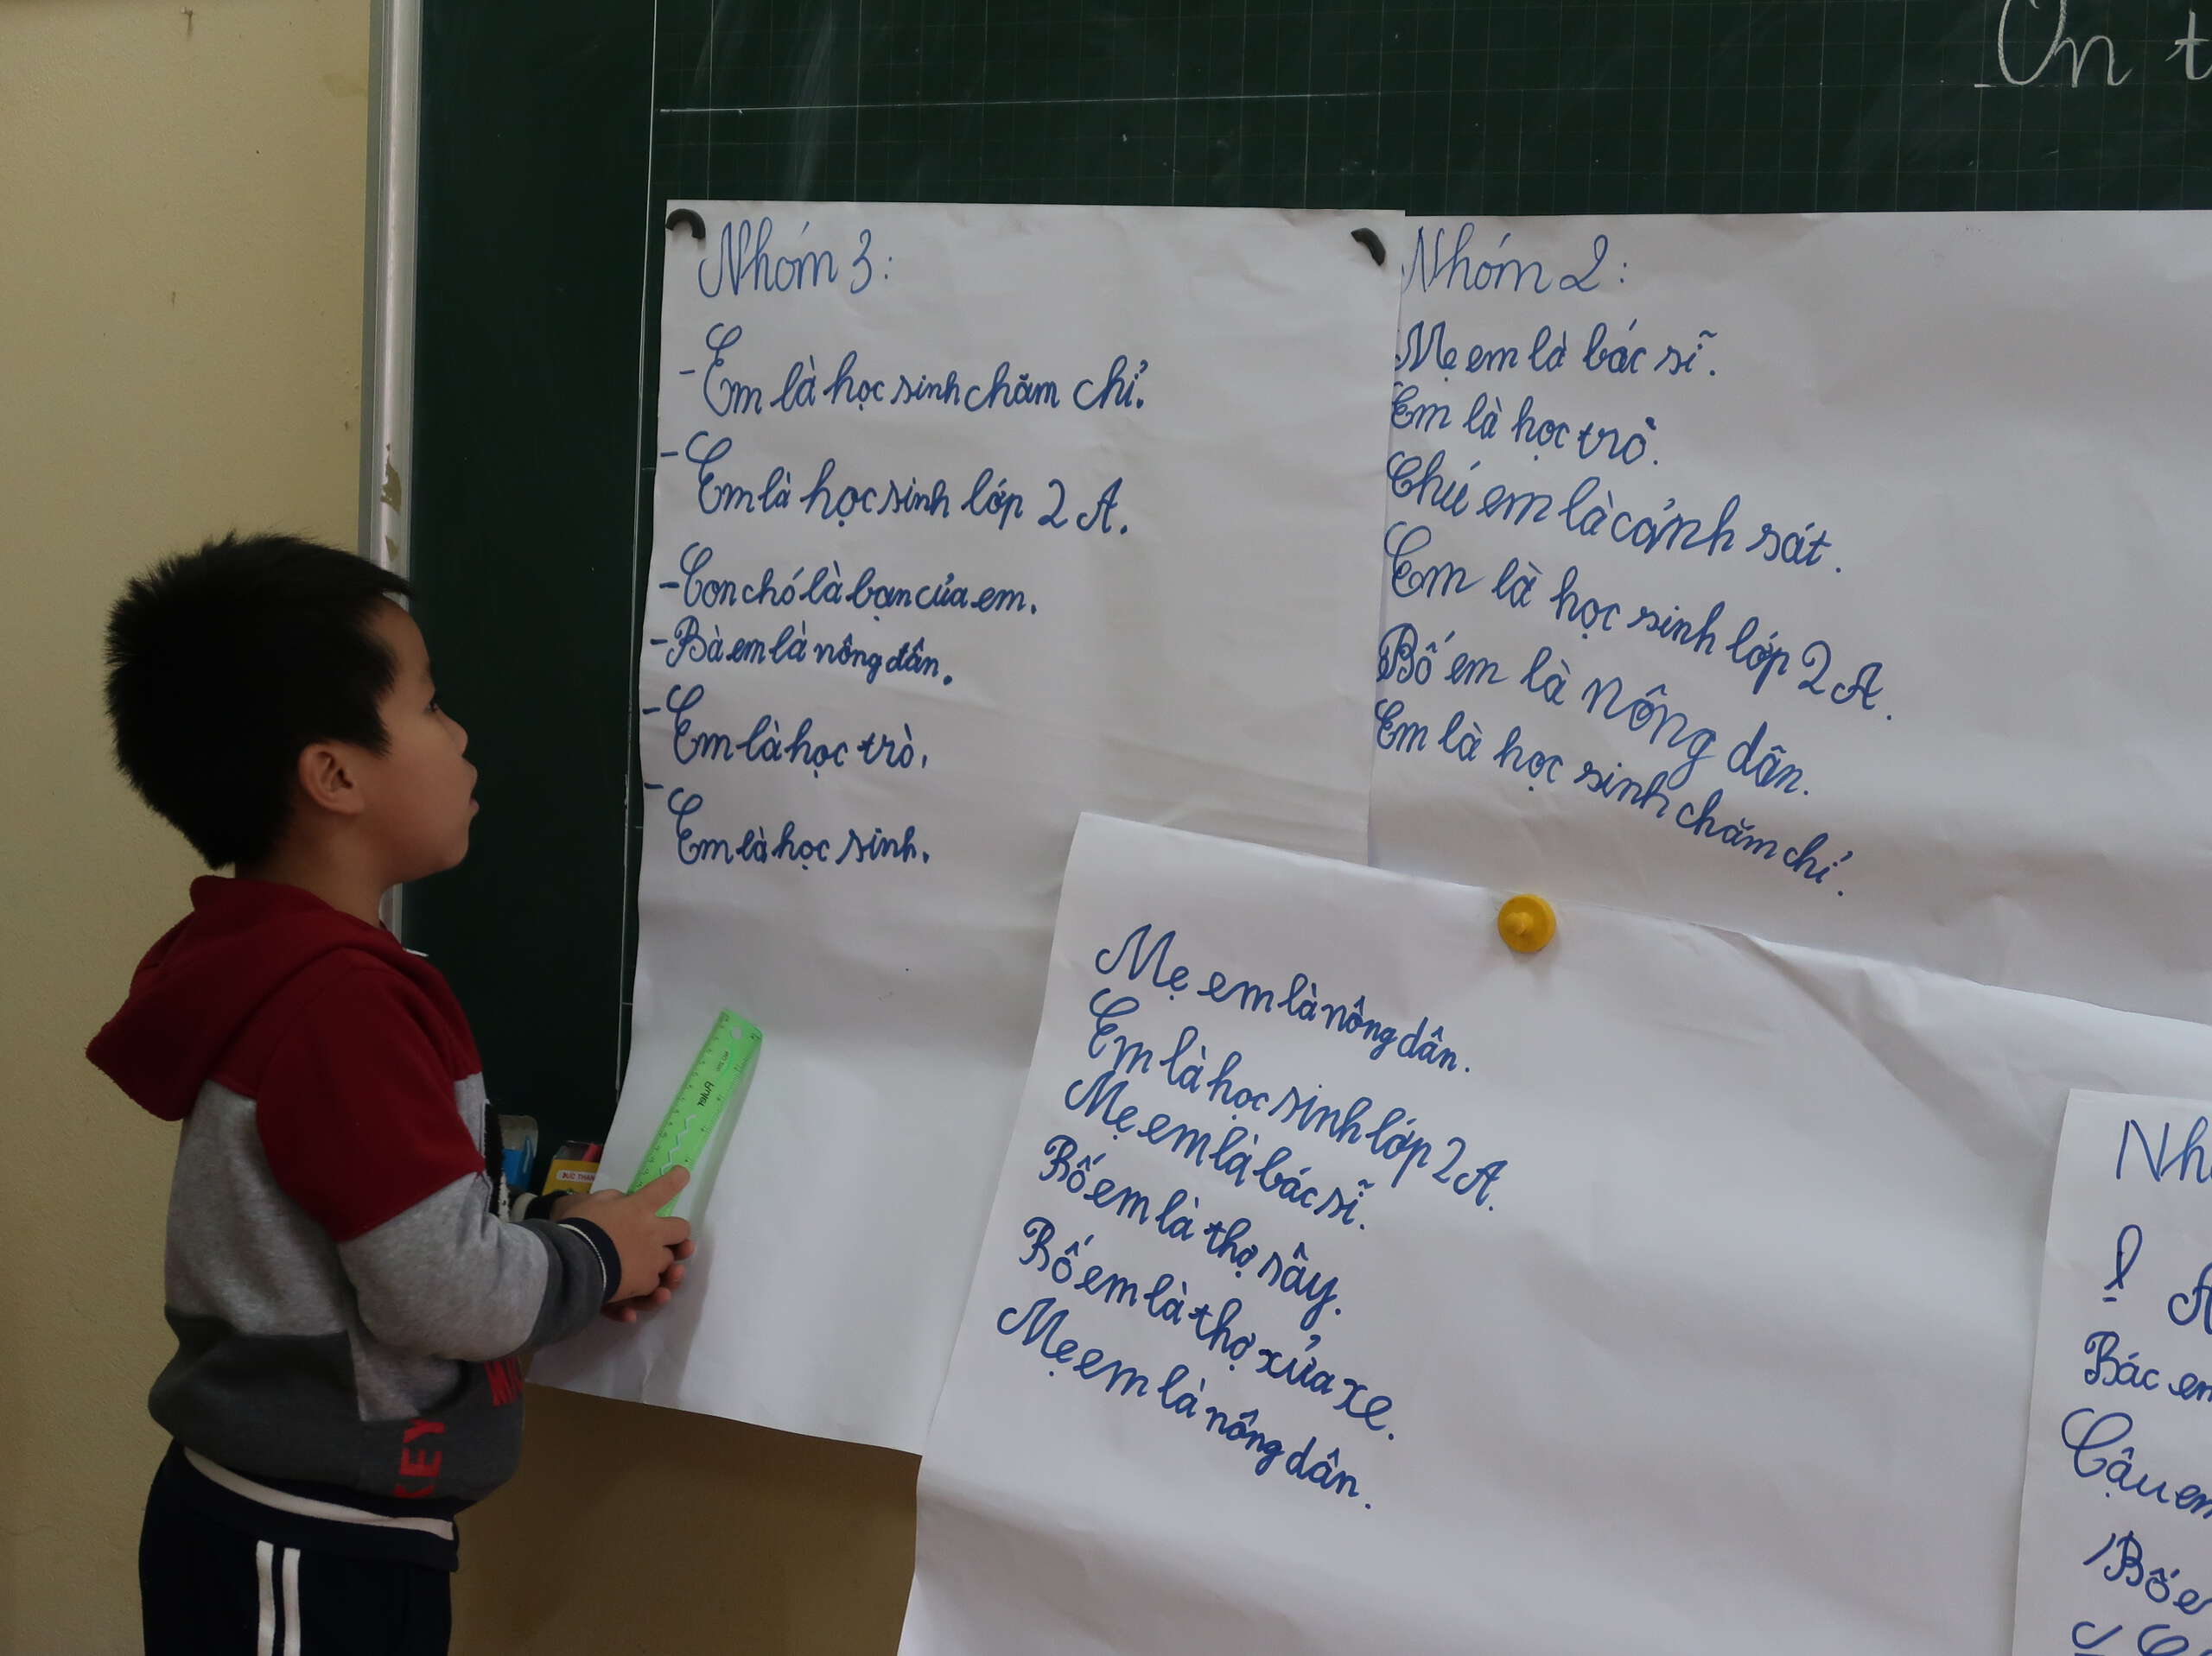 Ôn t
Nhóm 3:
- Em là học sinh chăm chỉ.
- Em là học sinh lớp 2A.
- Con chó là bạn của em.
- Bà em là nông dân.
- Em là học trò.
- Em là học sinh.
Nhóm 2:
Mẹ em là bác sĩ.
Em là học trò.
Chú em là cảnh sát.
Em là học sinh lớp 2A.
Bố em là nông dân.
Em là học sinh chăm chỉ.
Mẹ em là nông dân.
Em là học sinh lớp 2A.
Mẹ em là bác sĩ.
Bố em là thợ sây.
Bố em là thợ xửa xe.
Mẹ em là nông dân.
Nh
Bác em
Cậu em
Bố e
Ruler
KEY